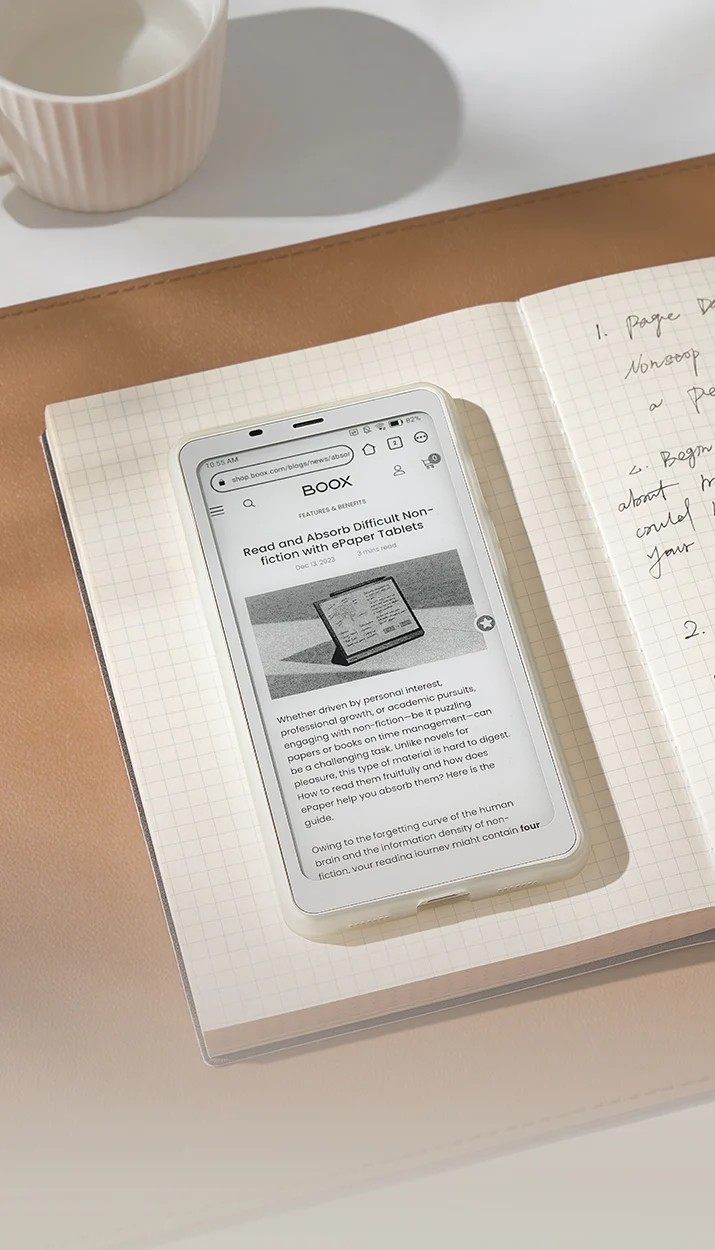 10:55 AM
82%
shop.boox.com/blogs/news/absor
2
BOOX
0
FEATURES & BENEFITS
Read and Absorb Difficult Non-
fiction with ePaper Tablets
Dec 13, 2023
3 mins read
Whether driven by personal interest,
professional growth, or academic pursuits,
engaging with non-fiction—be it puzzling
papers or books on time management—can
be a challenging task. Unlike novels for
pleasure, this type of material is hard to digest.
How to read them fruitfully and how does
ePaper help you absorb them? Here is the
guide.
Owing to the forgetting curve of the human
brain and the information density of non-
fiction, your reading journey might contain four
1. Page
Nonstop
a
Begin
about
could
your
2.